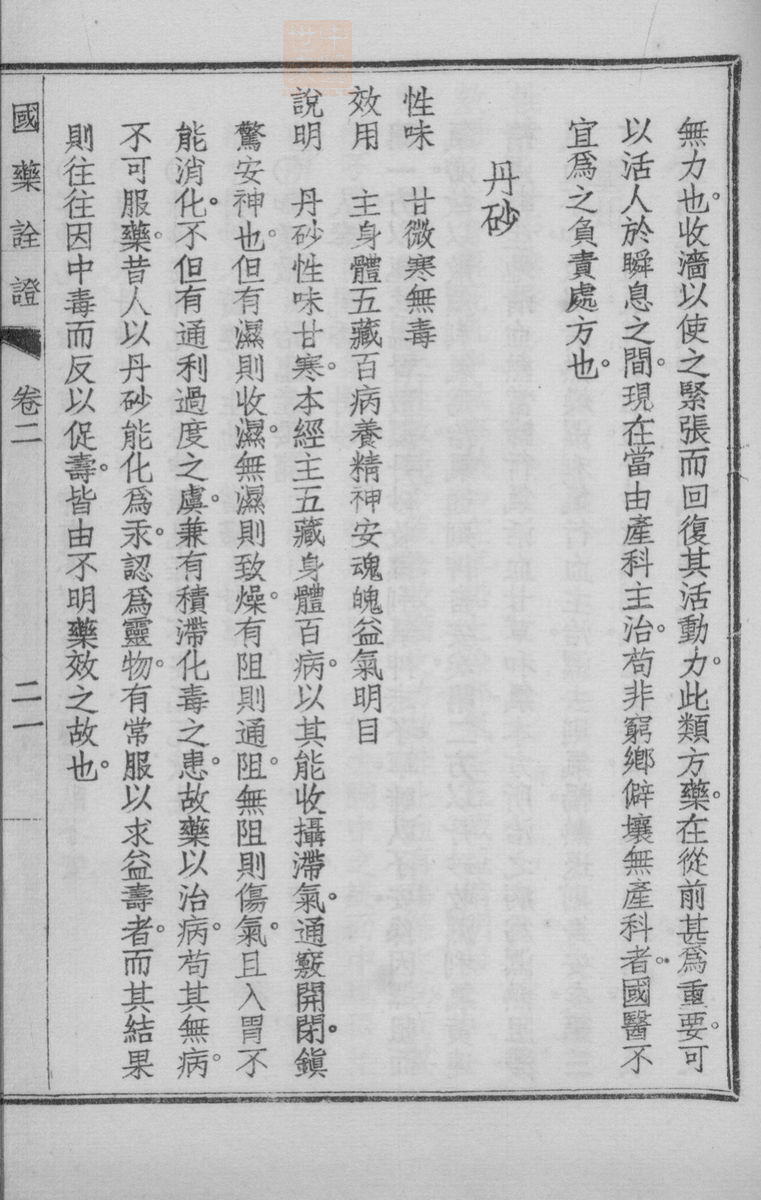 無力也。收濇以使之緊張而回復其活動力。此類方藥。在從前甚爲重要。可
以活人於瞬息之間。現在當由產科主治。苟非窮鄉僻壤無產科者。國醫不
宜爲之負責處方也。
丹砂
性味　甘微寒無毒
效用　主身體五藏百病養精神安魂魄益氣明目
說明　丹砂性味甘寒。本經主五藏身體百病。以其能收攝滯氣。通竅開閉。鎮
驚安神也。但有濕則收濕。無濕則致燥。有阻則通阻。無阻則傷氣。且入胃不
能消化。不但有通利過度之虞。兼有積滯化毒之患。故藥以治病。苟其無病。
不可服藥。昔人以丹砂能化爲汞。認爲靈物。有常服以求益壽者。而其結果
則往往因中毒而反以促壽。皆由不明藥效之故也。
國藥詮證　卷二　二一